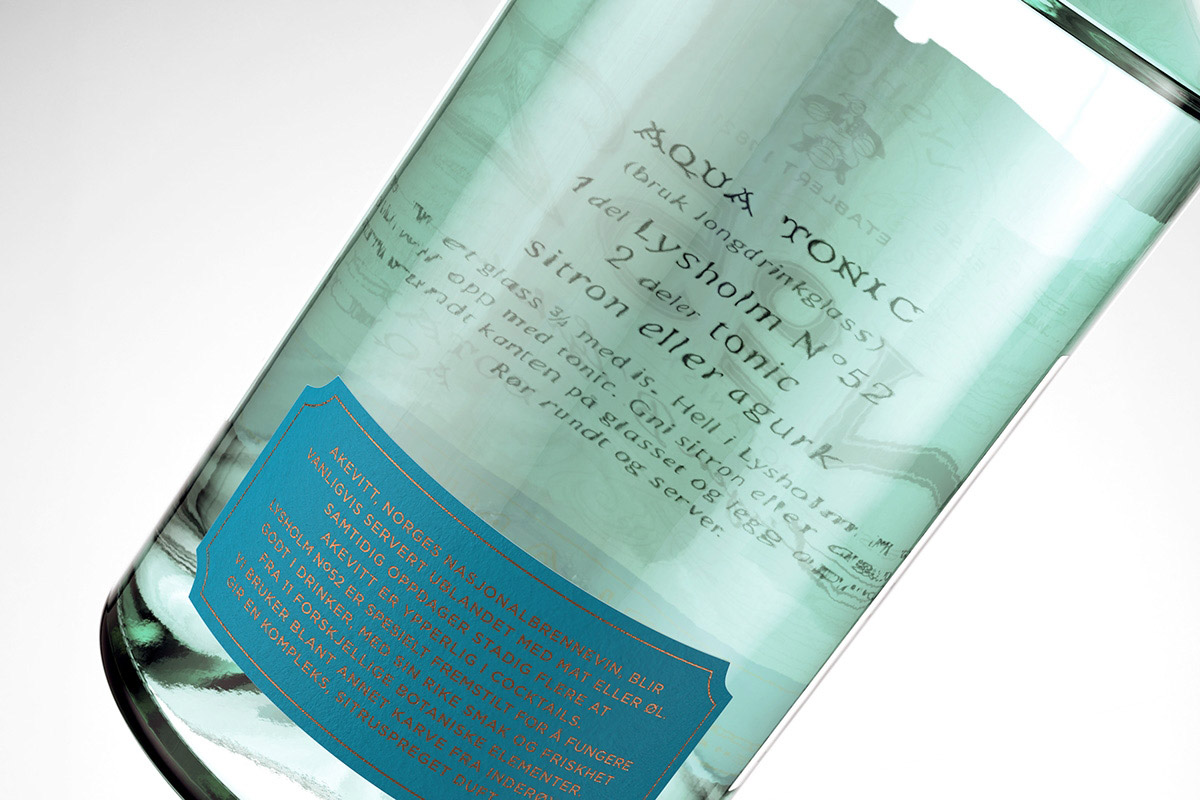 AQUA TONIC
(bruk longdrinkglass)
1 del Lysholm No 52
2 deler tonic
sitron eller agurk
et glass ¾ med is. Hell i Lysholm
opp med tonic. Gni sitron eller
rundt kanten på glasset og legg
Rør rundt og server.
ETABLERT 1821
AKEVITT, NORGES NASJONALBRENNEVIN, BLIR
VANLIGVIS SERVERT UBLANDET MED MAT ELLER ØL.
SAMTIDIG OPPDAGER STADIG FLERE AT
AKEVITT ER YPPERLIG I COCKTAILS.
LYSHOLM No52 ER SPESIELT FREMSTILT FOR Å FUNGERE
GODT I DRINKER, MED SIN RIKE SMAK OG FRISKHET
FRA 11 FORSKJELLIGE BOTANISKE ELEMENTER.
VI BRUKER BLANT ANNET KARVE FRA INDERØY
GIR EN KOMPLEKS, SITRUSPREGET DUFT